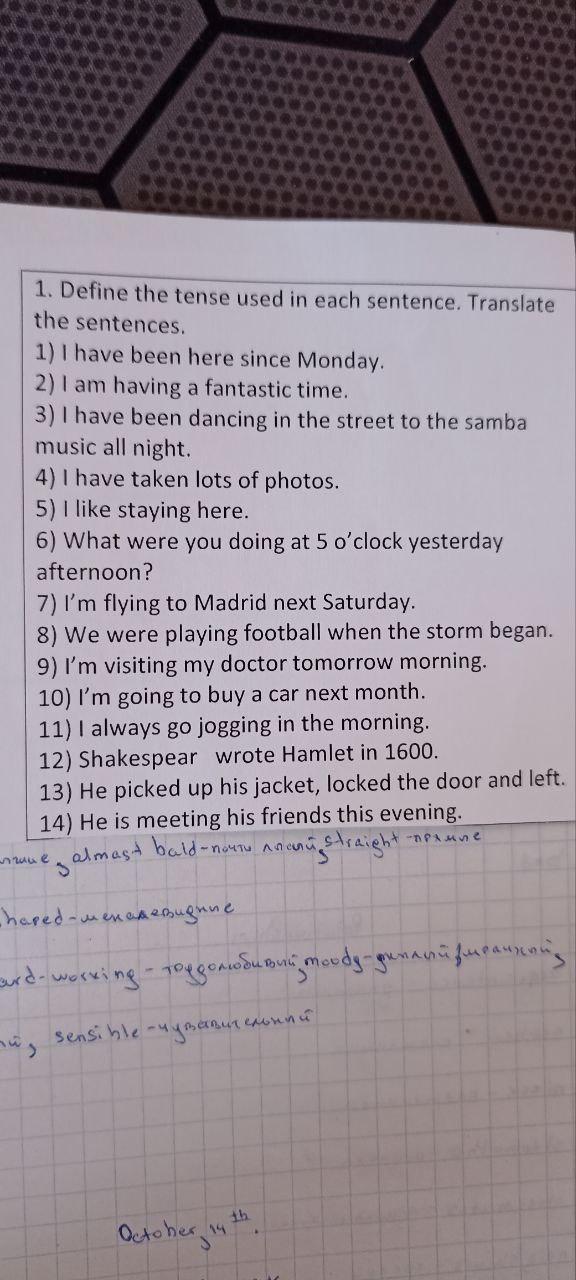 1. Define the tense used in each sentence. Translate
the sentences.
1) I have been here since Monday.
2) I am having a fantastic time.
3) I have been dancing in the street to the samba
music all night.
4) I have taken lots of photos.
5) I like staying here.
6) What were you doing at 5 o'clock yesterday
afternoon?
7) I'm flying to Madrid next Saturday.
8) We were playing football when the storm began.
9) I'm visiting my doctor tomorrow morning.
10) I'm going to buy a car next month.
11) I always go jogging in the morning.
12) Shakespear wrote Hamlet in 1600.
13) He picked up his jacket, locked the door and left.
14) He is meeting his friends this evening.
almost bald-почти лысый, straight-прямые
haped-миндалевидные
ard-working-трудолюбивый, moody-
sensible-чувствительный
October, 14th.